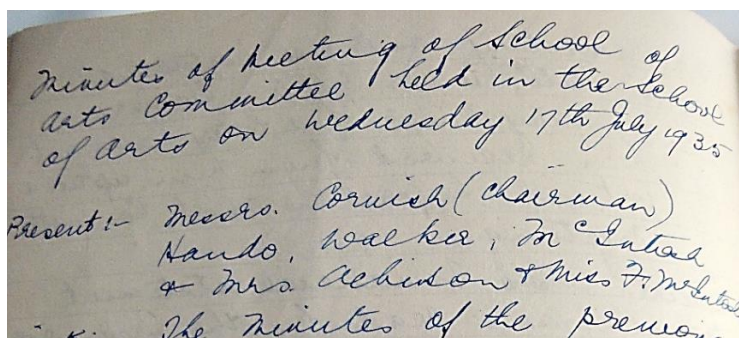 Minutes of Meeting of School of
Arts Committee held in the School
of Arts on Wednesday 17th July 1935
Present:- Messrs. Cornish (Chairman)
Hando, Walker, McIntosh
& Mrs. Acheson & Miss F. McIntosh
The Minutes of the previous